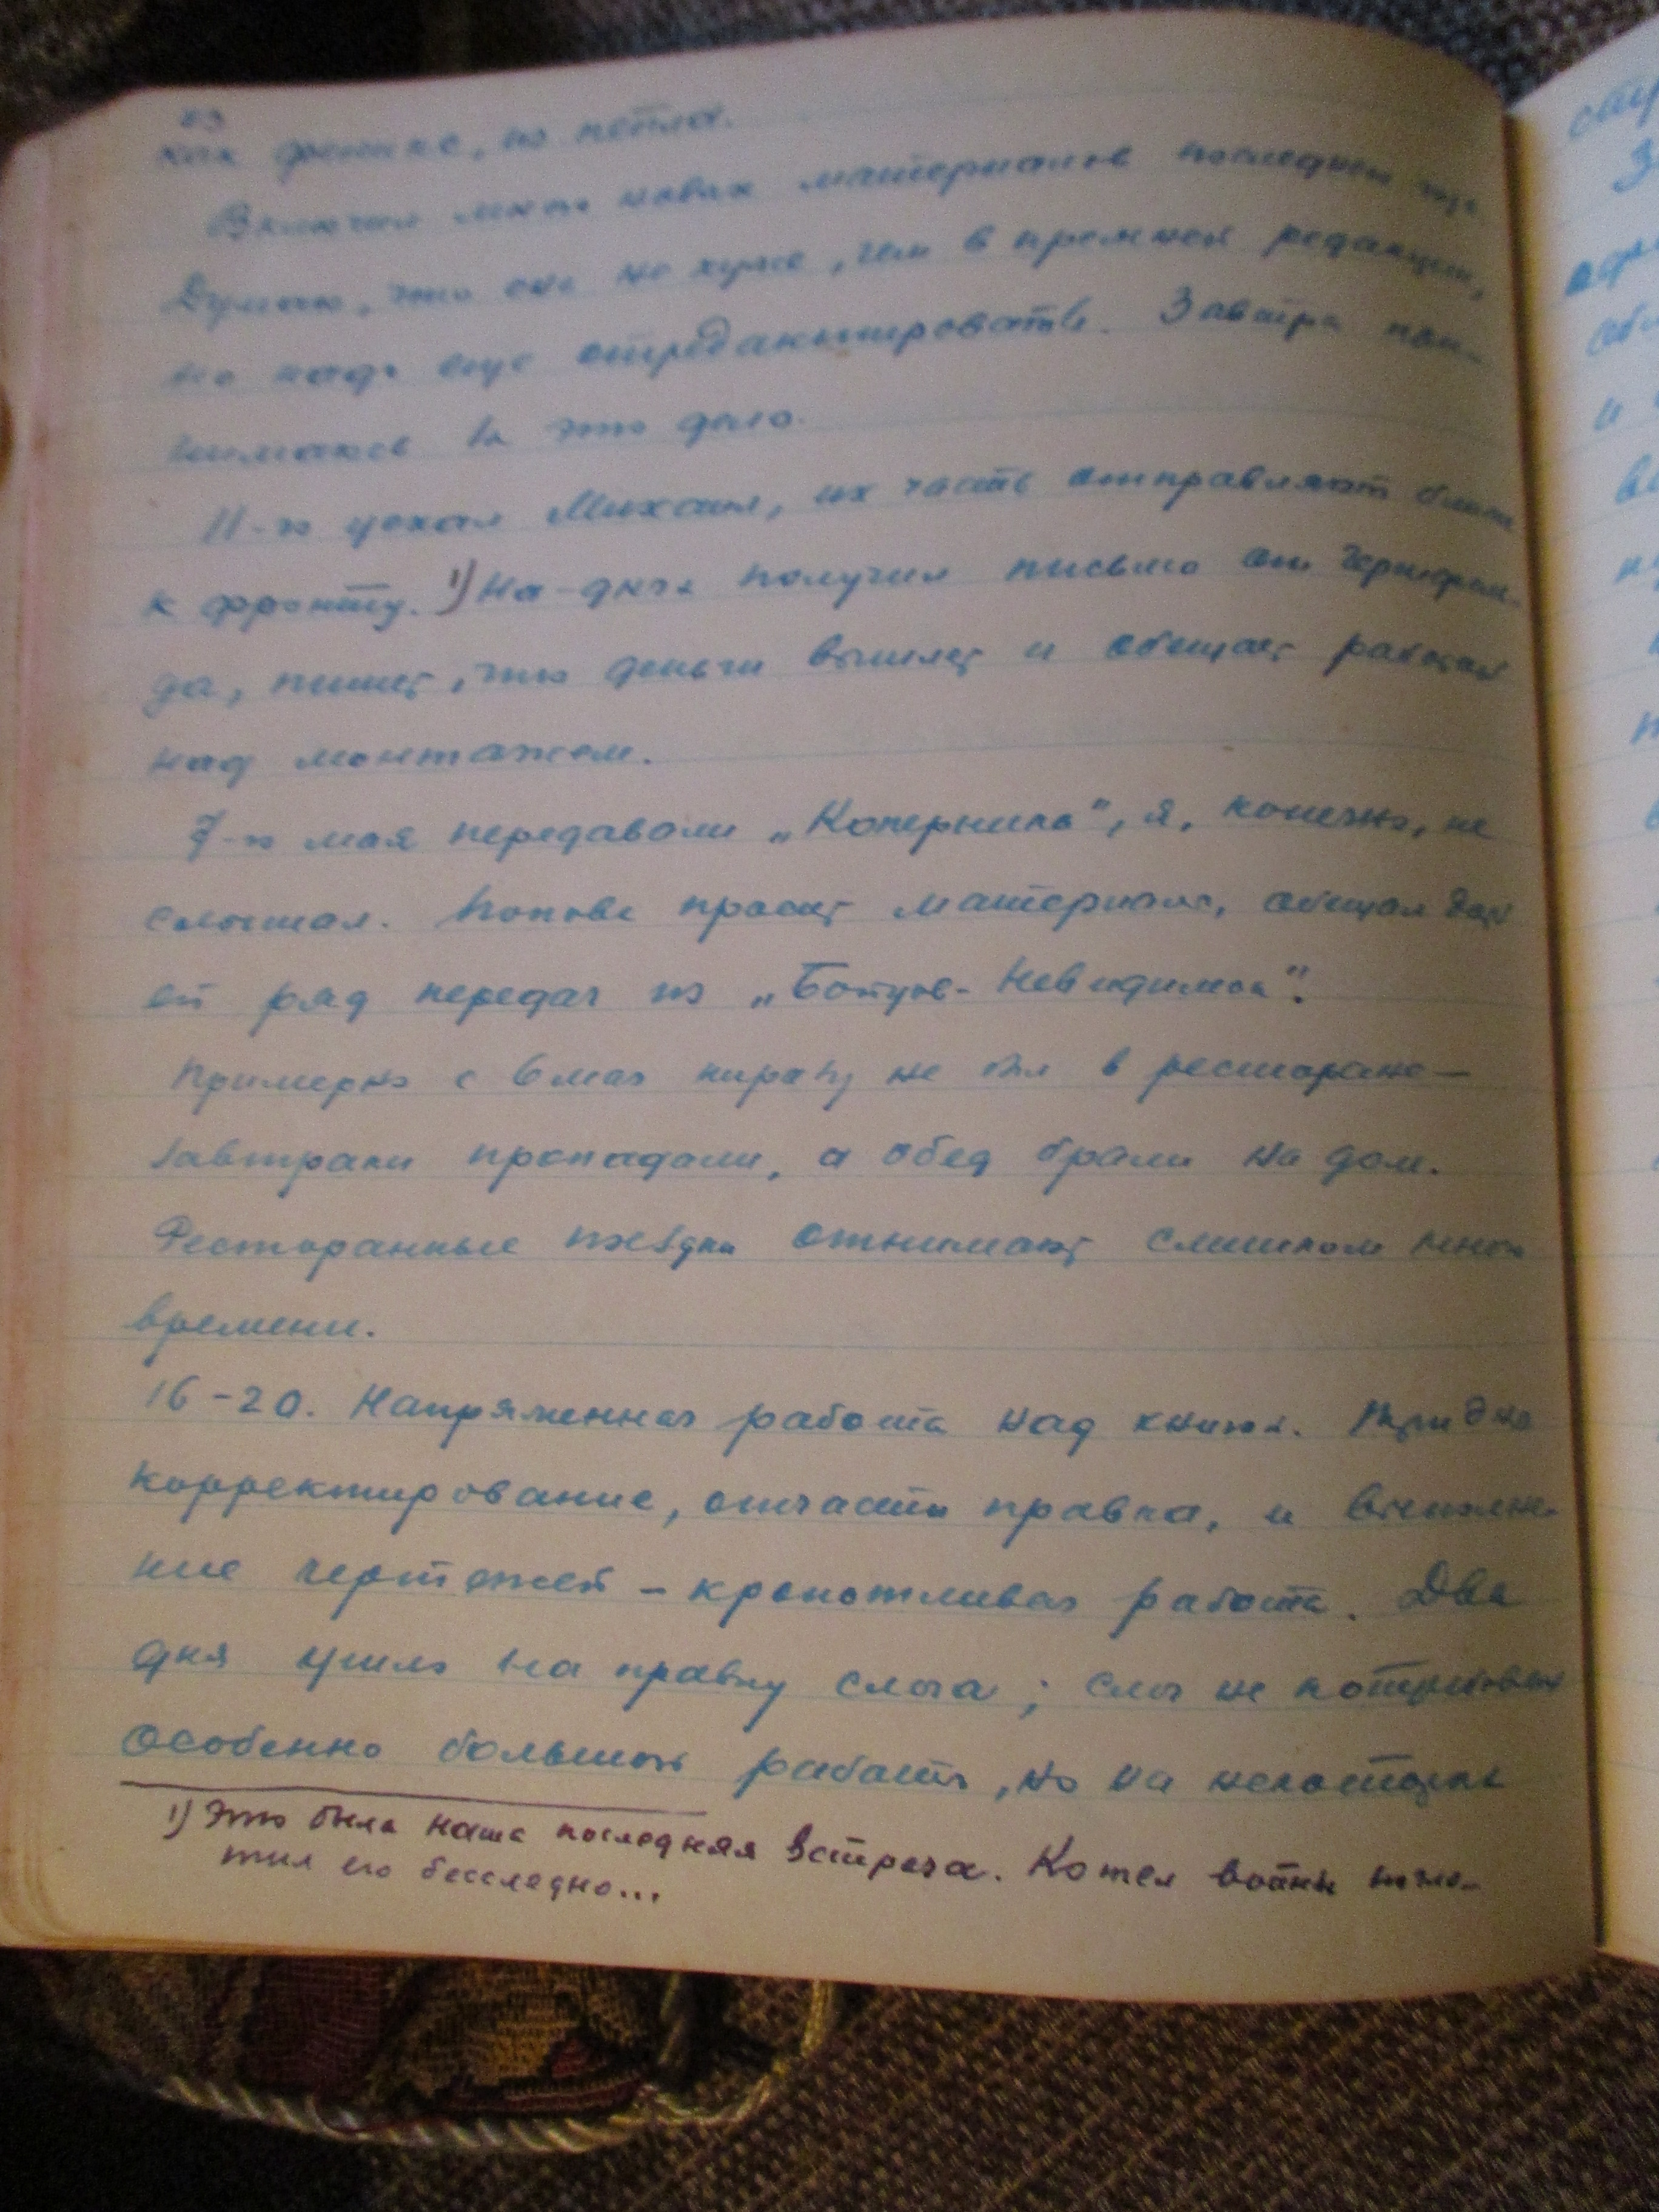 как феникс, из пепла.
Включил много новых материалов последнего года.
Думаю, что она не хуже, чем в прежней редакции,
но надо еще отредактировать. Завтра при-
нимаюсь за это дело.
11-го уехал Михаил, их часть отправляют ближе
к фронту. 1) На-днях получил письмо от
да, пишет, что деньги вышлет и обещает работать
над монтажом.
7-го мая передавали „Коперника", я, конечно, не
слышал. Попова просит материала, обещал дать
ей ряд передач из „Бойцов-Невидимок".
Примерно с 6 мая ни разу не был в ресторане —
завтраки пропадали, а обед брали на дом.
Ресторанные поездки отнимают слишком много
времени.
16-20. Напряженная работа над книгой. Трудно
корректирование, отчасти правка, и выполне-
ние чертежей – кропотливая работа. Два
дня ушло на правку слога; слог не потребовал
особенно большой работы, но на некоторых
1) Это была наша последняя встреча. Котел войны погло-
тил его бесследно...